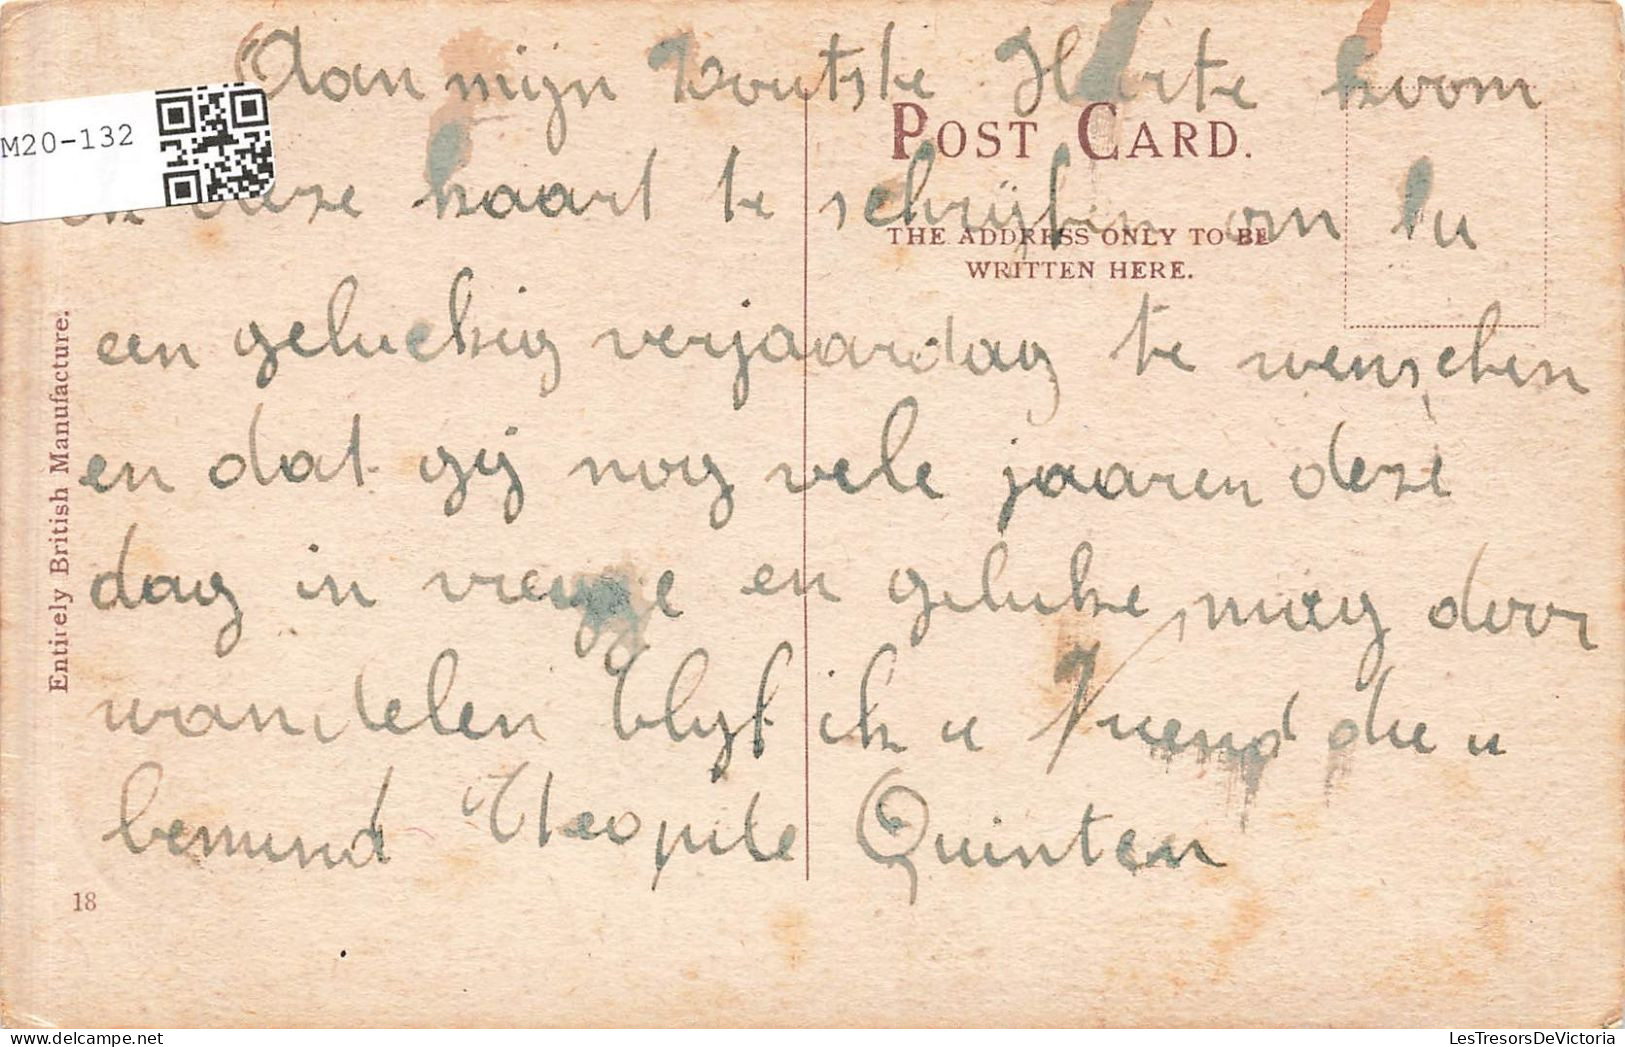 Aan mijn zoutste Harte koom
M20-132
POST CARD.
ik deze kaart te schrijfen om tu
THE ADDRESS ONLY TO BE
WRITTEN HERE.
een geluckig verjaardag te wenschen
en dat gij nog vele jaaren deze
dag in vreugje en gelukke mag door
wandelen blyf ik u Vriend die u
bemind Theopile Quinten
Entirely British Manufacture.
18
LesTresorsDeVictoria